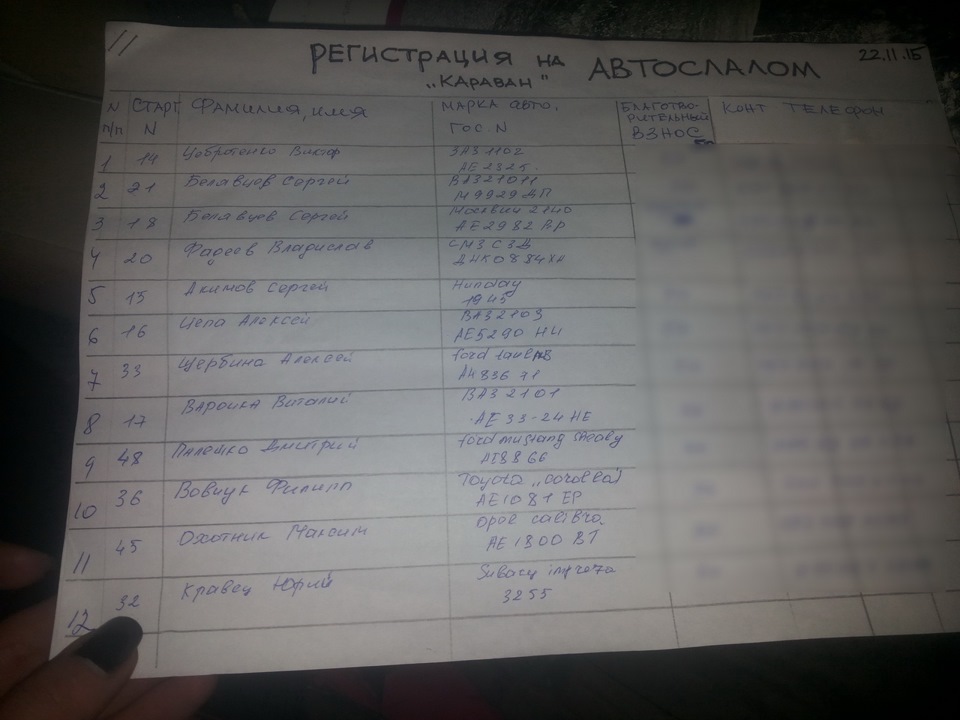 11
РЕГИСТРАЦИЯ НА АВТОСЛАЛОМ 22.11.15
„КАРАВАН"
N п/п СТАРТ N ФАМИЛИЯ, ИМЯ МАРКА АВТО. ГОС. N БЛАГОТВОРИТЕЛЬНЫЙ ВЗНОС КОНТ ТЕЛЕФОН
1 14 Виктор ЗАЗ 1102
АЕ 2325.
2 21 Белявцев Сергей ВАЗ 21011
М9929ДП
3 18 Белявцев Сергей Москвич 2140
АЕ2982 РР
4 20 Фадеев Владислав СМЗ СЗД
ДНК0884ХА
5 15 Акимов Сергей Hunday
1945
6 16 Цепа Алексей ВАЗ2103
АЕ5290 НИ
7 33 Щербина Алексей ford
8 17 Виталий ВАЗ 2101
АЕ 33-24 НЕ
9 48 Палешко Дмитрий ford mustang
АЕ8866
10 36 Вовчук Филипп Toyota „corolla"
АЕ1081 ЕР
11 45 Охотник Максим Opel calibra
АЕ 1300 ВТ
12 32 Кравец Юрий Subacy impreza
3255